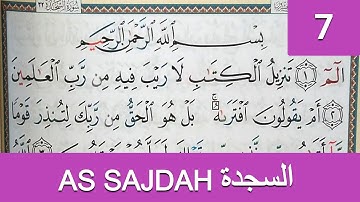 7
بِسْمِ اللَّهِ الرَّحْمَٰنِ الرَّحِيمِ
الٓمٓ ۝١ تَنزِيلُ الْكِتَٰبِ لَا رَيْبَ فِيهِ مِن رَّبِّ الْعَٰلَمِينَ
۝٢ أَمْ يَقُولُونَ افْتَرَىٰهُ ۚ بَلْ هُوَ الْحَقُّ مِن رَّبِّكَ لِتُنذِرَ قَوْمًا
AS SAJDAH السجدة